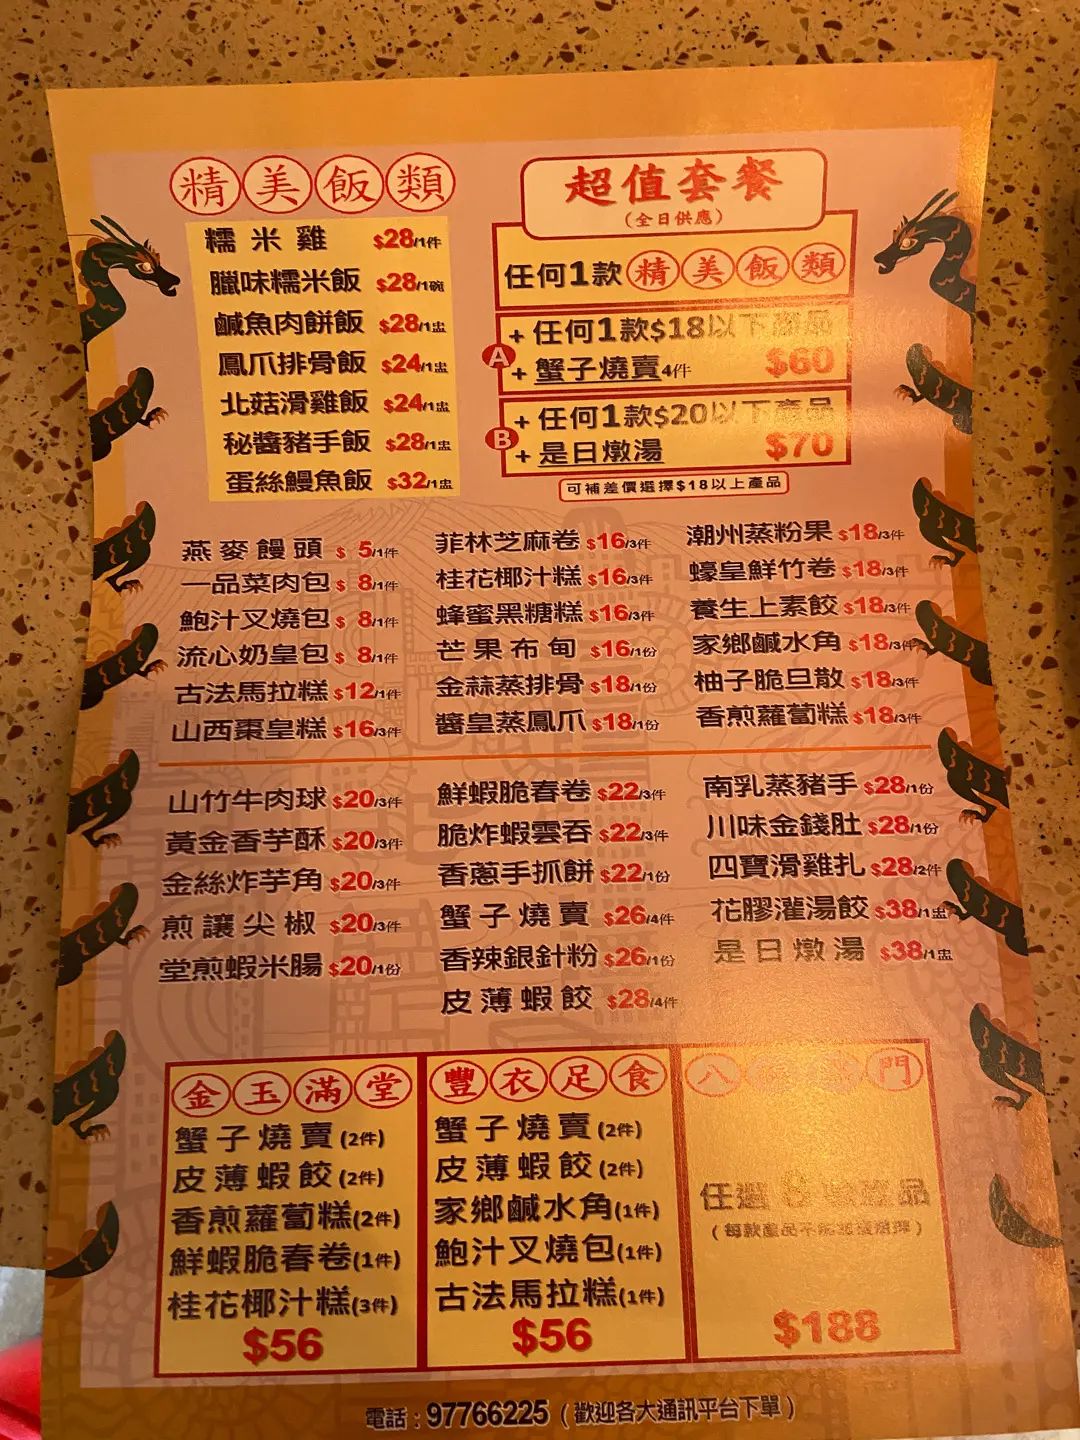 精美飯類
糯米雞 $28/1件
臘味糯米飯 $28/1碗
鹹魚肉餅飯 $28/1盅
鳳爪排骨飯 $24/1盅
北菇滑雞飯 $24/1盅
秘醬豬手飯 $28/1盅
蛋絲鰻魚飯 $32/1盅
超值套餐
(全日供應)
任何1款精美飯類
A
+ 任何1款$18以下產品
+ 蟹子燒賣4件 $60
B
+ 任何1款$20以下產品
+ 是日燉湯 $70
可補差價選擇$18以上產品
燕麥饅頭 $5/1件
一品菜肉包 $8/1件
鮑汁叉燒包 $8/1件
流心奶皇包 $8/1件
古法馬拉糕 $12/1件
山西棗皇糕 $16/3件
菲林芝麻卷 $16/3件
桂花椰汁糕 $16/3件
蜂蜜黑糖糕 $16/3件
芒果布甸 $16/1份
金蒜蒸排骨 $18/1份
醬皇蒸鳳爪 $18/1份
潮州蒸粉果 $18/3件
蠔皇鮮竹卷 $18/3件
養生上素餃 $18/3件
家鄉鹹水角 $18/3件
柚子脆旦散 $18/3件
香煎蘿蔔糕 $18/3件
山竹牛肉球 $20/3件
黃金香芋酥 $20/3件
金絲炸芋角 $20/3件
煎讓尖椒 $20/3件
堂煎蝦米腸 $20/1份
鮮蝦脆春卷 $22/3件
脆炸蝦雲吞 $22/3件
香蔥手抓餅 $22/1份
蟹子燒賣 $26/4件
香辣銀針粉 $26/1份
皮薄蝦餃 $28/4件
南乳蒸豬手 $28/1份
川味金錢肚 $28/1份
四寶滑雞扎 $28/2件
花膠灌湯餃 $38/1盅
是日燉湯 $38/1盅
金玉滿堂
蟹子燒賣(2件)
皮薄蝦餃(2件)
香煎蘿蔔糕(2件)
鮮蝦脆春卷(1件)
桂花椰汁糕(3件)
$56
豐衣足食
蟹子燒賣(2件)
皮薄蝦餃(2件)
家鄉鹹水角(1件)
鮑汁叉燒包(1件)
古法馬拉糕(1件)
$56
八 門
任選8 產品
(每款產品不能重複選擇)
$188
電話：97766225（歡迎各大通訊平台下單）